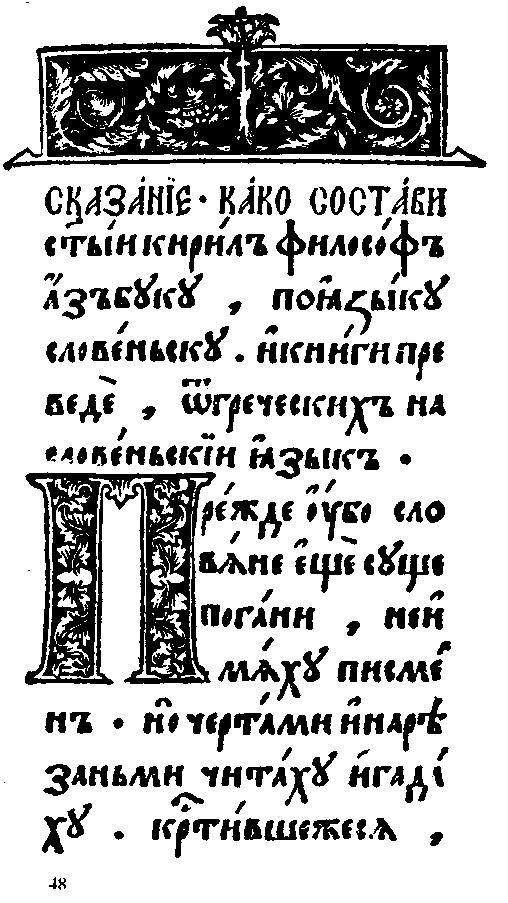 СКАЗА́НЇЕ · КА́КО СОСТА́ВИ
ст҃ы́и кири́лъ филосо́фъ
а҆́зъбꙋкꙋ , поꙗ҆зы́кꙋ
слове́ньскꙋ . и҆кни́ги пре
ведѐ , ѿгре́ческихъ на
слове́ньскїи ꙗ҆зы́къ .
Пре́жде ᲂу҆́бо сло
вѧ́не є҆щѐ сꙋще
пога́ни , неи҆
мѧ́хꙋ писме́
нъ . но̀ черта́ми и҆нарѣ́
заньми чита́хꙋ и҆гада́
хꙋ . кр҃ти́вшежесѧ ,
48